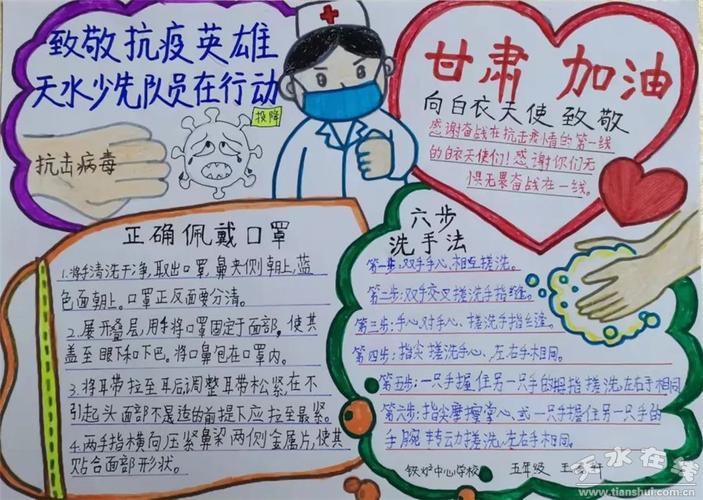 致敬抗疫英雄
天水少先队员在行动
投降
抗击病毒
甘肃 加油
向白衣天使致敬
感谢奋战在抗击疫情的第一线
的白衣天使们！感谢你们无
惧无畏奋战在一线。
正确佩戴口罩
1.将手清洗干净,取出口罩,鼻夹侧朝上,蓝
色面朝上。口罩正反面要分清。
2.展开叠层,用手将口罩固定于面部,使其
盖至眼下和下巴,将口鼻包在口罩内。
3.将耳带拉至耳后,调整耳带松紧,在不
引起头面部不是适的前提下应拉至最紧。
4.两手指横向压紧鼻梁两侧金属片,使其
贴合面部形状。
六步
洗手法
第一步:双手手心,相互搓洗。
第二步:双手交叉搓洗手指缝。
第三步:手心对手心、搓洗手指缝。
第四步:指尖搓洗手心、左右手相同。
第五步:一只手握住另一只手的拇指搓洗,左右手相同
第六步:指尖摩擦掌心,或一只手握住另一只手的
手腕转动搓洗,左右手相同。
铁炉中心学校 五年级 王
天水在线
www.tianshui.com.cn